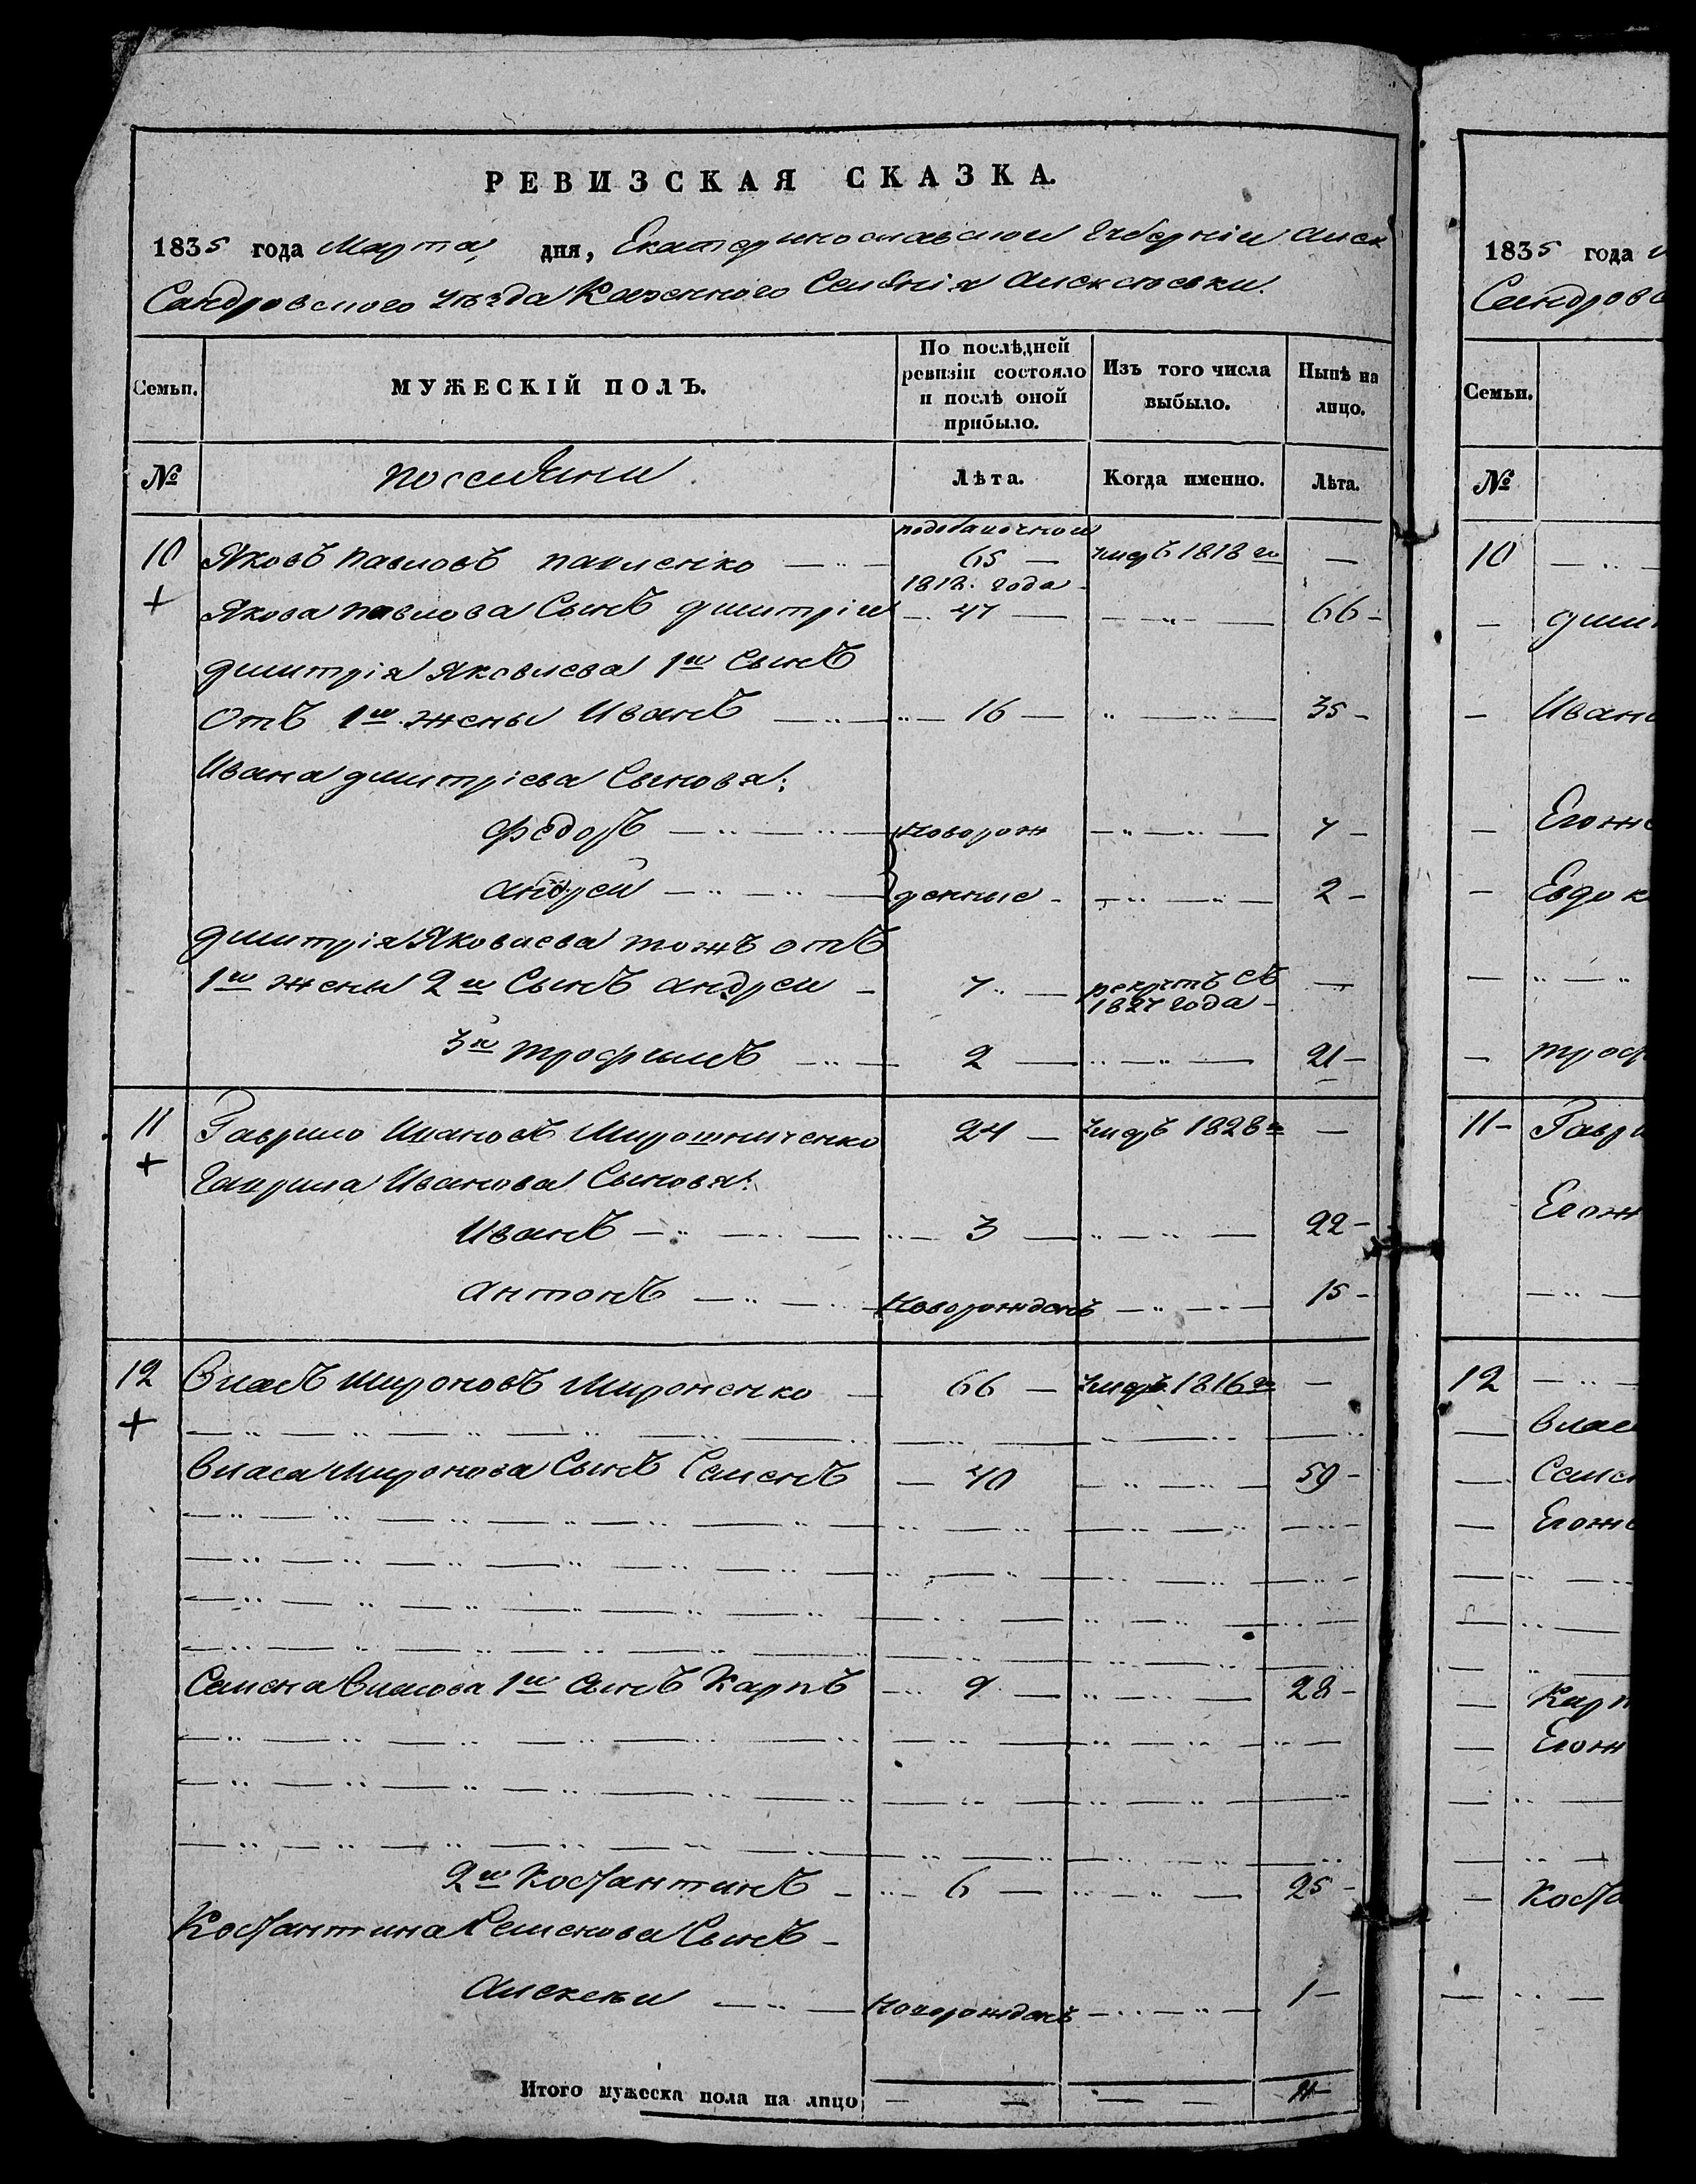 РЕВИЗСКАЯ СКАЗКА.
1835 года Марта, дня, Екатеринославской Губерніи Алек
Сандровского уѣзда Казенного Селенія Алексѣевки.
Семьи. МУЖЕСКІЙ ПОЛЪ. По послѣдней ревизіи состояло и послѣ оной прибыло. Изъ того числа выбыло. Нынѣ на лицо.
№ поселяни. Лѣта. Когда именно. Лѣта.
10 Яковъ Павловъ Павленко — 65 — умеръ 1818 го —
1812. года
+ Якова Павлова Сынъ Дмитрій — 47 — — 66 —
Дмитрія Яковлева 1й Сынъ
отъ 1й жены Иванъ — 16 — — 35 —
Ивана Дмитріева Сыновья:
Федоръ — новорож — 7 —
Андрей — денные — 2 —
Дмитрія Яковлева тожъ отъ
1й жены 2й Сынъ Андрей — 7 — рекрутъ съ 1827 года —
3й Трофимъ — 2 — — 21 —
11 Гаврило Ивановъ Мирошниченко 24 — умеръ 1828 го —
+ Гаврила Иванова Сыновья:
Иванъ — 3 — — 22 —
Антонъ — Новорожденъ — 15 —
12 Власъ Мироновъ Мироненко — 66 — умеръ 1816 го —
+
Власа Миронова Сынъ Семенъ — 40 — 59 —
Семена Власова 1й Сынъ Карпъ — 9 — — 28 —
2й Костантинъ — 6 — — 25 —
Костантина Семенова Сынъ —
Алексѣй — Новорожденъ — 1 —
Итого мужеска пола на лицо — — —
1835 года
Сандров
Семьи.
№
10
Дми
Ивана
Егоже
Евдок
Троф
11 — Гаври
Егож
12
Влас
Семе
Егоже
Карп
Егож
Коста